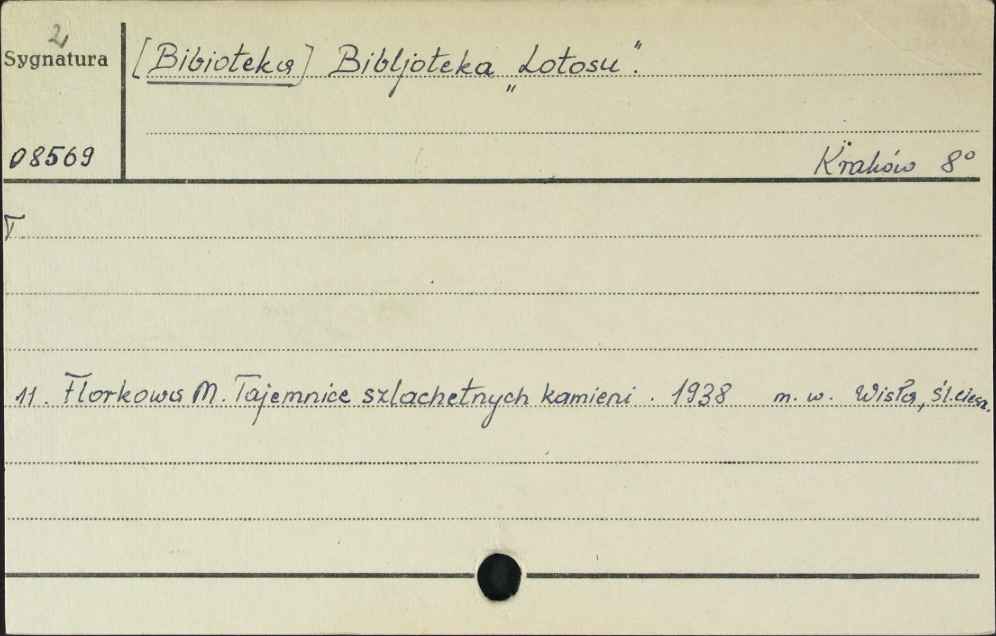 2
Sygnatura
[Bibioteka] Bibljoteka „Lotosu".
08569
Kraków 8°
V
11. Florkowa M. Tajemnice szlachetnych kamieni. 1938 m. w. Wisła, Śl. ciesz.